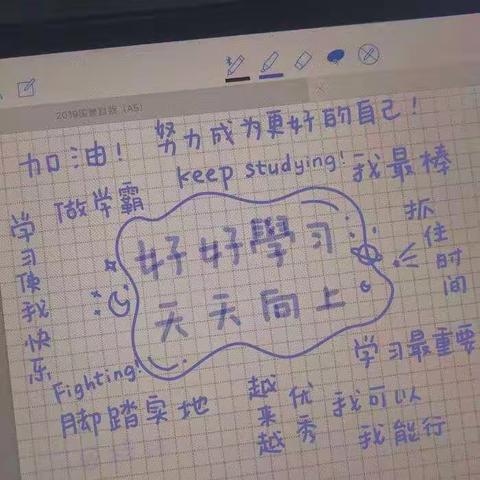 加油！
努力成为更好的自己！
keep studying!
我最棒
做学霸
学习使我快乐
抓住时间
好好學习
天天向上
学习最重要
Fighting!
脚踏实地
越来越
优秀
我可以
我能行